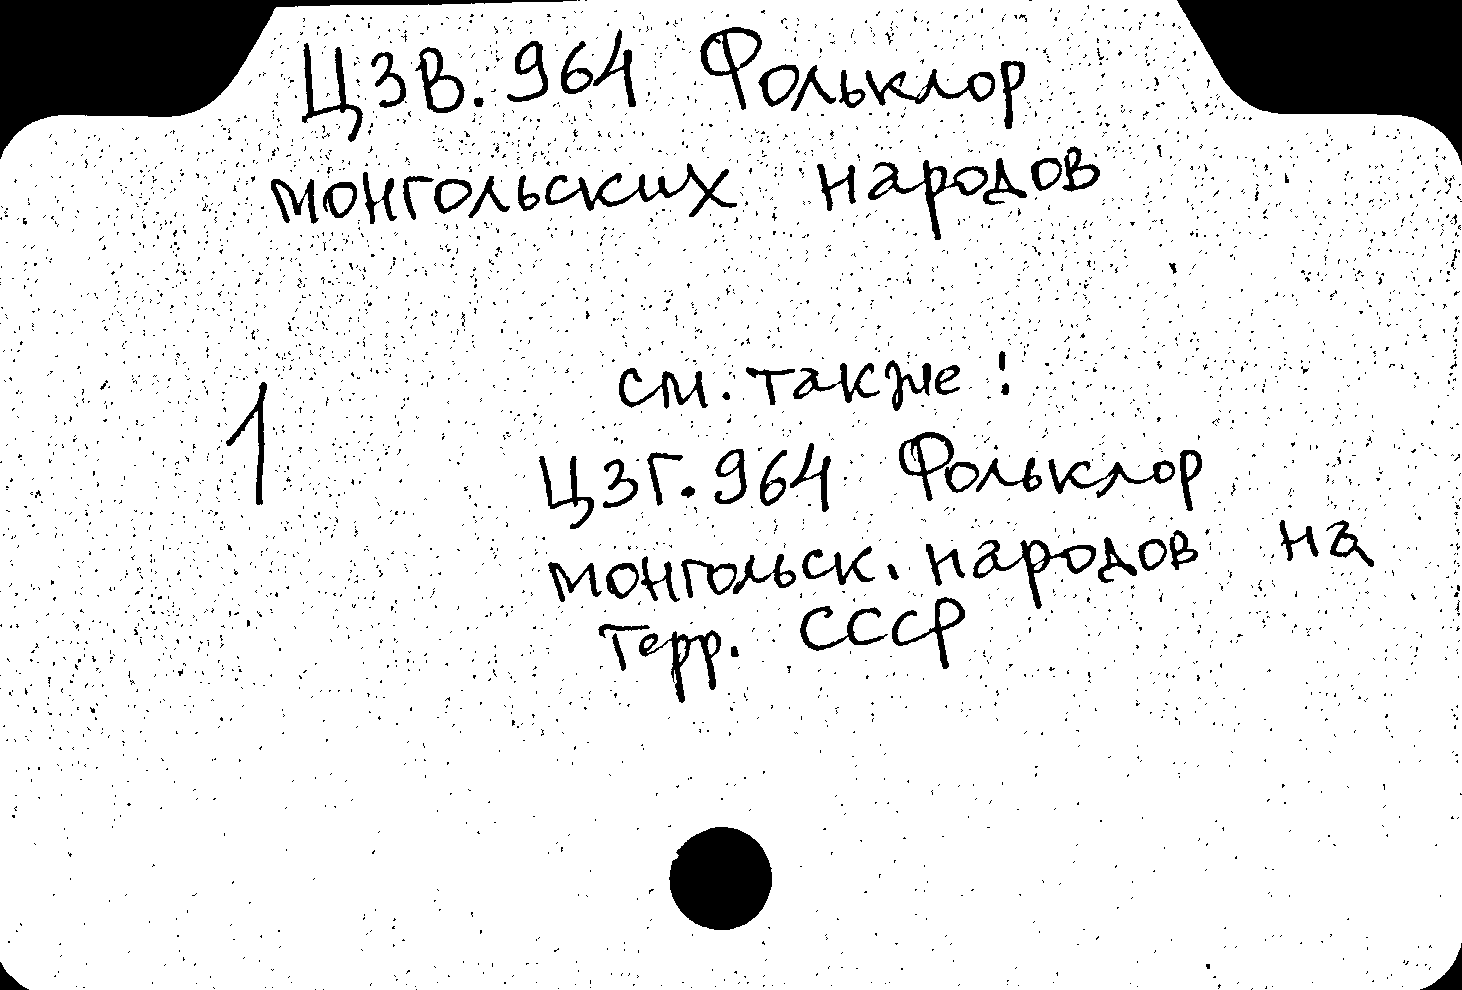 ЦЗВ.964 Фольклор
монгольских народов
см. также:
1
ЦЗГ.964 Фольклор
монгольск. народов на
терр. СССР